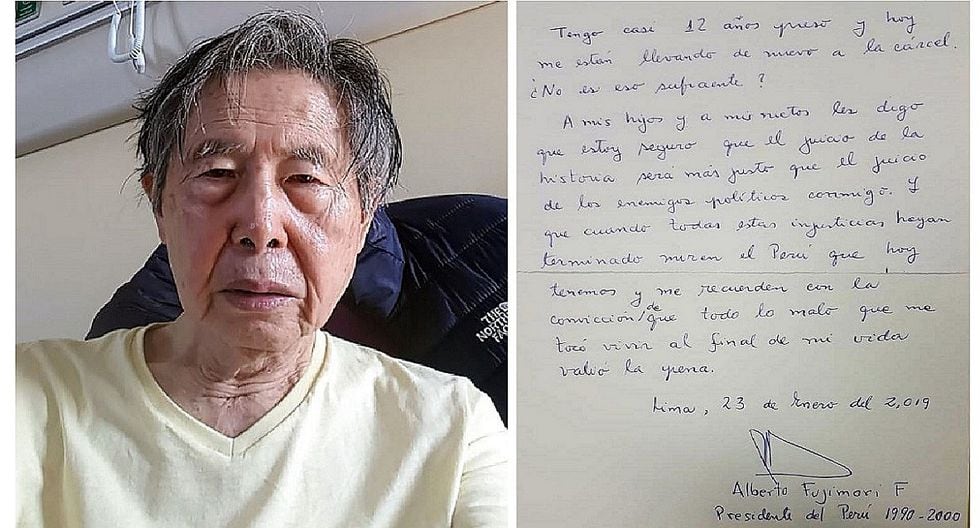 THE
NORTH
FACE
Tengo casi 12 años preso y hoy
me están llevando de nuevo a la cárcel.
¿No es eso suficiente?
A mis hijos y a mis nietos les digo
que estoy seguro que el juicio de la
historia será más justo que el juicio
de los enemigos políticos conmigo. Y
que cuando todas estas injusticias hayan
terminado miren el Perú que hoy
tenemos y me recuerden con la
convicción/de que todo lo malo que me
tocó vivir al final de mi vida
valió la pena.
Lima, 23 de Enero del 2,019
Alberto Fujimori F
Presidente del Perú 1990-2000